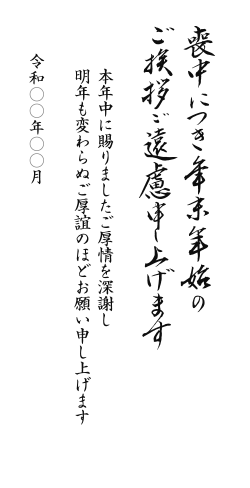 喪中につき年末年始の
ご挨拶ご遠慮申し上げます
本年中に賜りましたご厚情を深謝し
明年も変わらぬご厚誼のほどお願い申し上げます
令和〇〇年〇〇月